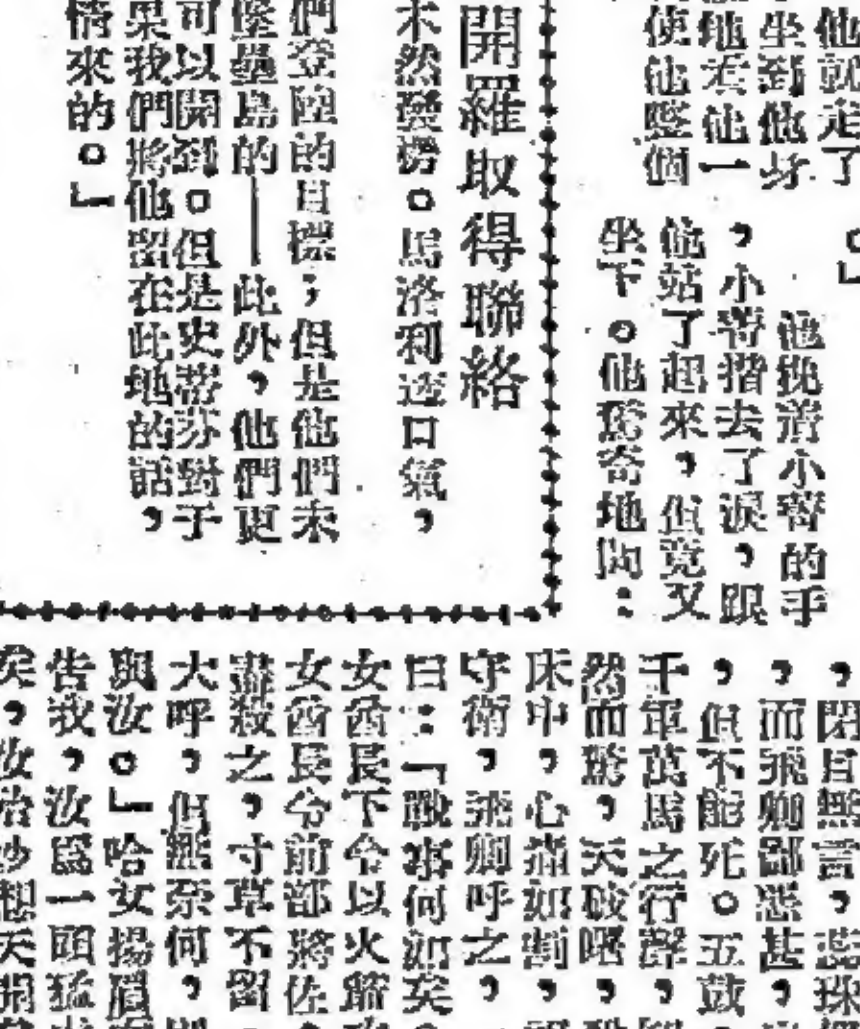 他就走了
坐到他身
地去他一
使他整個
。」
他挽着小蓉的手
，小蓉揩去了淚，跟
他站了起來，但竟又
坐下。他驚奇地問：
開羅取得聯絡
木然發楞。馬洛利透口氣，
們登陸的目標；但是他們未
壘島的——此外，他們更
可以開到。但是史蒂芬對于
果我們將他留在此地的話，
情來的。」
，閉目無言，蕊珠
，而飛卿鄙惡甚，
，但不能死。五鼓，
千軍萬馬之行聲，
然而驚，天破曙，
床中，心痛如割，
守衛，飛卿呼之，
曰：「戰事何如矣
女酋長下令以火箭
女酋長令前部將佐
盡殺之，寸草不留
大呼，但無奈何，
與汝。」哈女揚眉
告我，汝爲一頭猛
矣，汝想天開